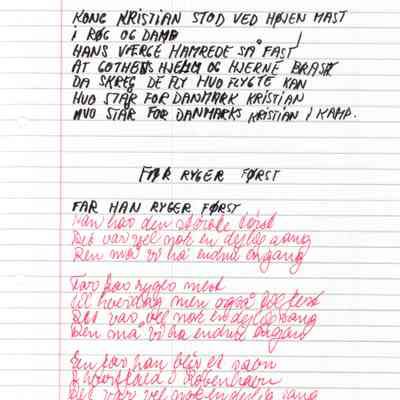 KONG KRISTIAN STOD VED HØJEN MAST
I RØG OG DAMP
HANS VÆRGE HAMREDE SÅ FAST
AT GOTHENS HJELM OG HJERNE BRAST
DA SKREG DE FLY HVO FLYGTE KAN
HVO STÅR FOR DANMARK KRISTIAN
HVO STÅR FOR DANMARKS KRISTIAN I KAMP.
FAR RYGER FØRST
FAR HAN RYGER FØRST
Han har den største tørst
Det var vel nok en dejlig sang
Den må vi ha endnu engang
Far har røget mest
til hverdag men også
Det var vel nok en dejlig sang
Den må vi ha endnu engang
En far han blev et navn
I København
Det var vel nok en dejlig sang